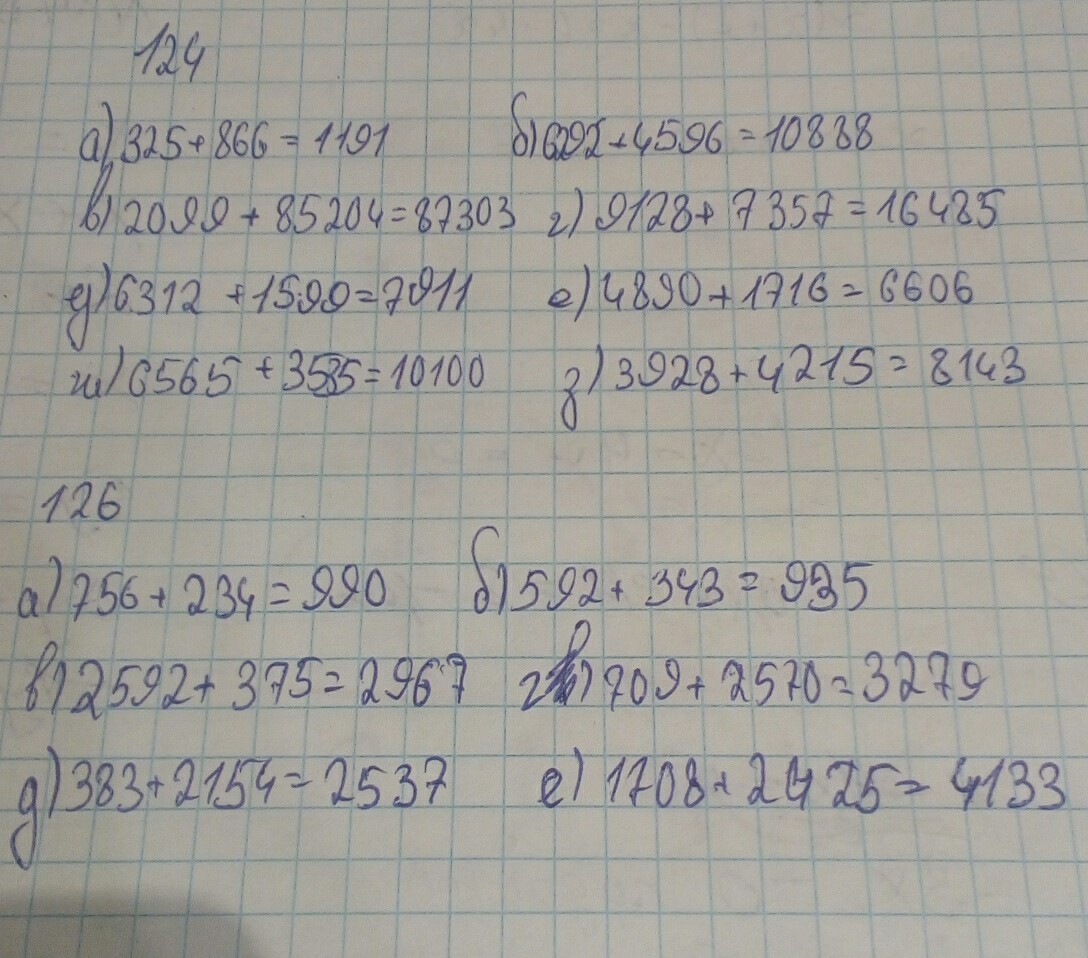 124
а) 325+866=1191 б) 6292+4596=10888
в) 2099+85204=87303 г) 9128+7357=16485
д) 6312+1599=7911 е) 4890+1716=6606
ж) 6565+3535=10100 з) 3928+4215=8143
126
а) 756+234=990 б) 592+343=935
в) 2592+375=2967 г) 709+2570=3279
д) 383+2154=2537 е) 1708+2425=4133